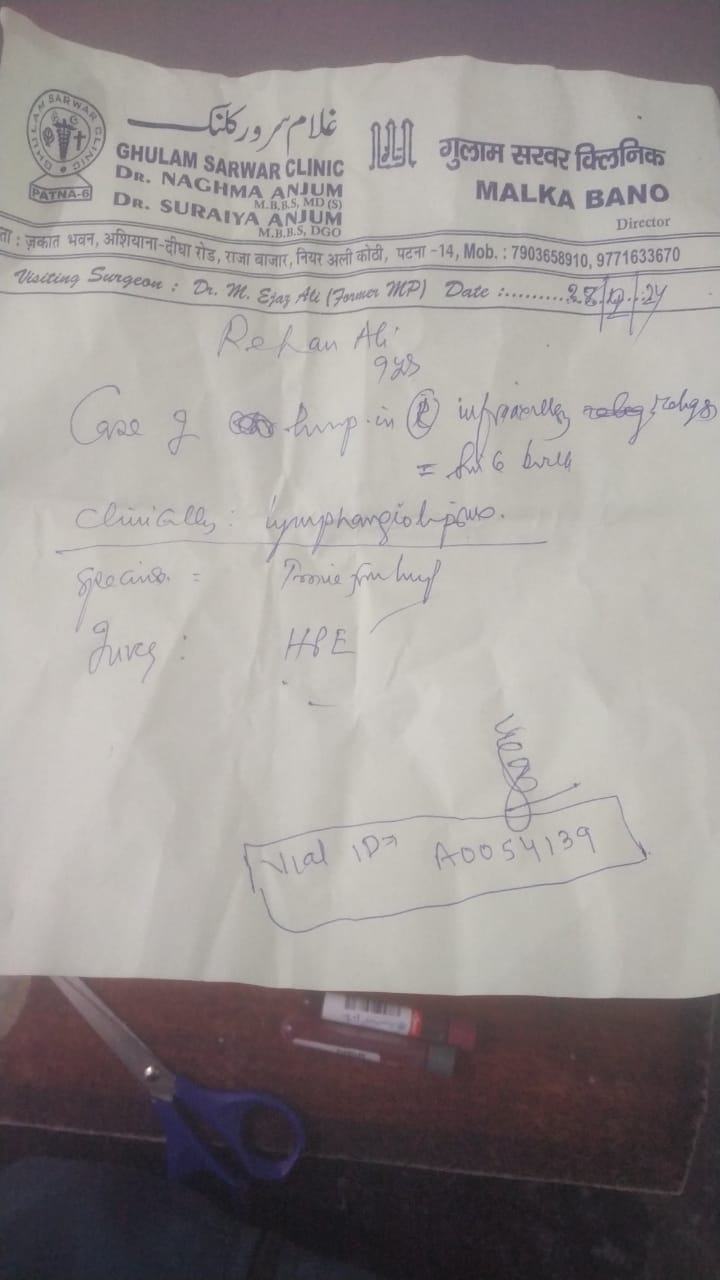 GHULAM SARWAR CLINIC
PATNA-6
غلام سرور کلنک
GHULAM SARWAR CLINIC
DR. NAGHMA ANJUM
M.B.B.S, MD (S)
DR. SURAIYA ANJUM
M.B.B.S, DGO
गुलाम सरवर क्लिनिक
MALKA BANO
Director
ता : ज़कात भवन, अशियाना-दीघा रोड, राजा बाजार, नियर अली कोठी, पटना -14, Mob. : 7903658910, 9771633670
Visiting Surgeon : Dr. M. Ejaz Ali (Former MP) Date :.......... 28/12/24
Rehan Ali
9 yrs
Case of lump in
Clinically :
=
:
HPE
Vial ID → A0054139